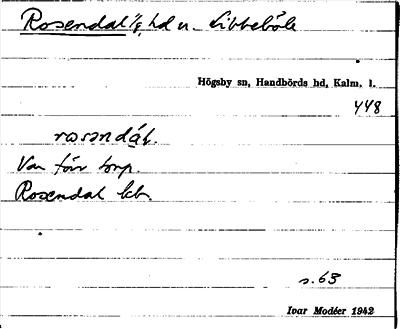 Rosendal lg hd u. Sibbeböle
Högsby sn, Handbörds hd, Kalm. l.
448
rosəndá̱l.
Var förr torp.
Rosendal kb.
s. 63
Ivar Modéer 1942